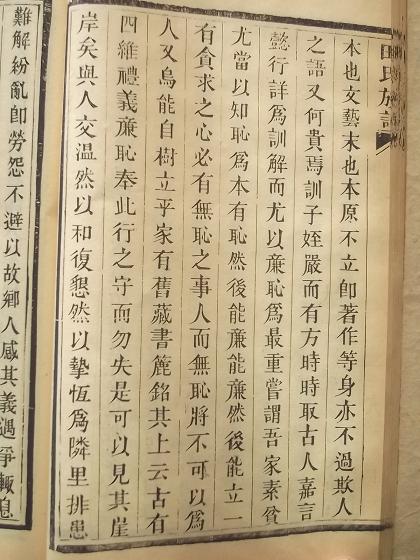 田氏族譜
本也文藝末也本原不立卽著作等身亦不過欺人
之語又何貴焉訓子姪嚴而有方時時取古人嘉言
懿行詳爲訓解而尤以廉恥爲最重嘗謂吾家素貧
尤當以知恥爲本有恥然後能廉能廉然後能立一
有貪求之心必有無恥之事人而無恥將不可以爲
人又烏能自樹立乎家有舊藏書簏銘其上云古有
四維禮義廉恥奉此行之守而勿失是可以見其崖
岸矣與人交溫然以和復懇然以摯恆爲隣里排患
難解紛亂卽勞怨不避以故鄉人感其義遇爭輒息